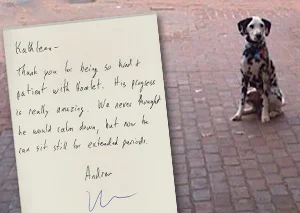 Kathleen –
Thank you for being so kind &
patient with Hamlet. His progress
is really amazing. We never thought
he would calm down, but now he
can sit still for extended periods.
Andrew